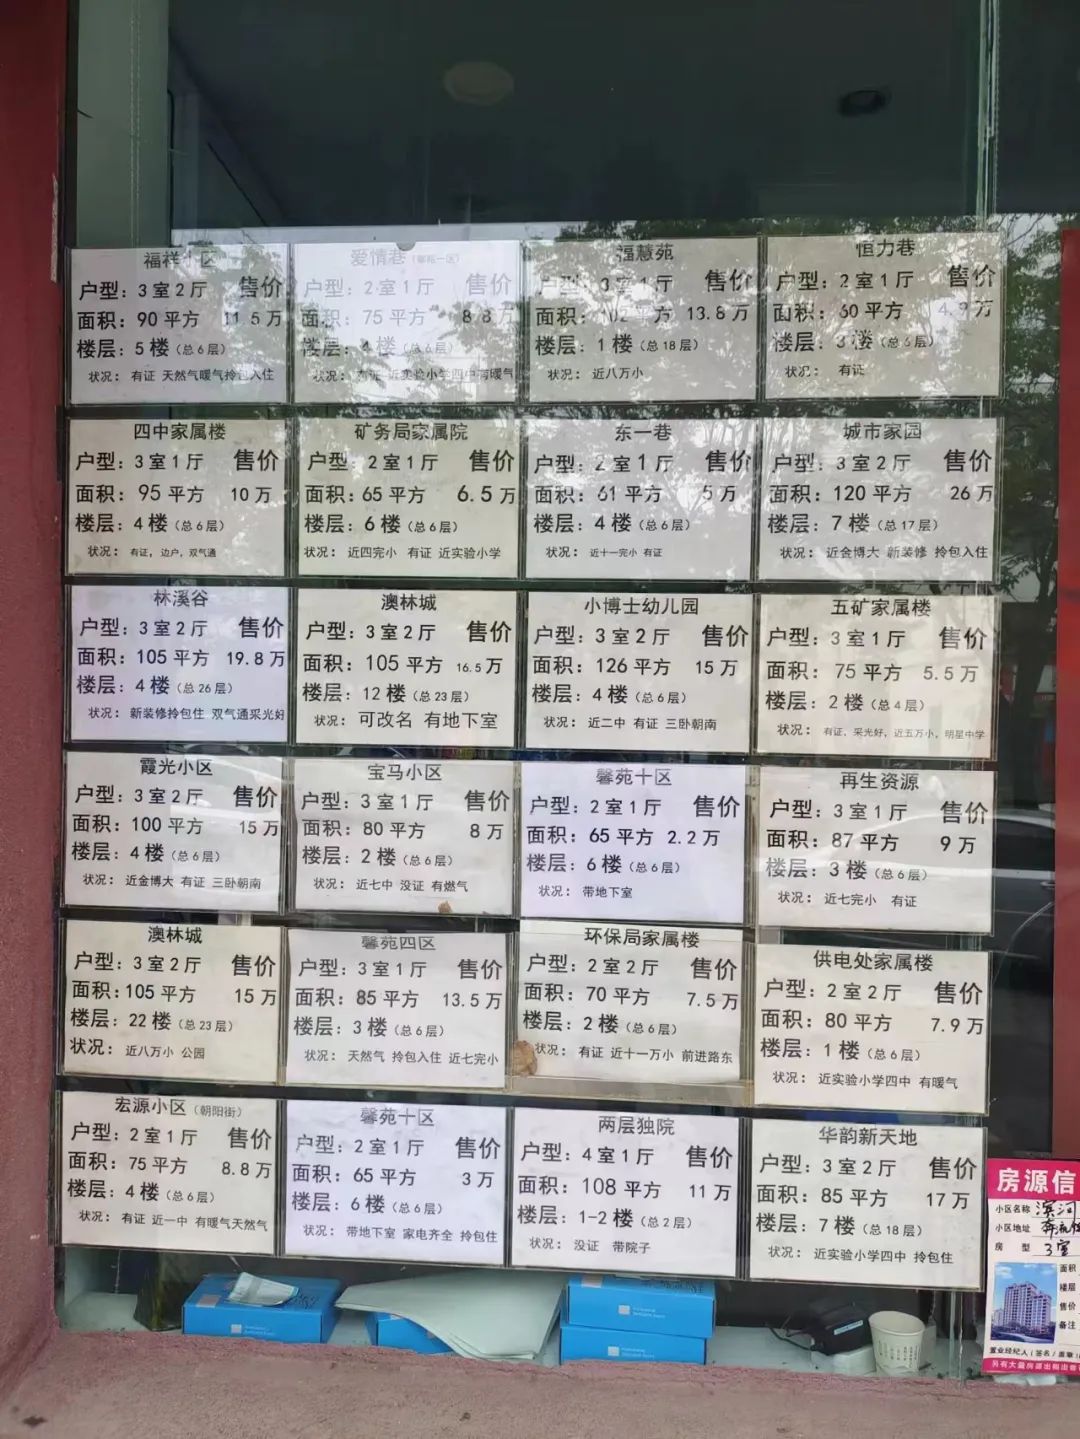 福祥小区
户型：3室2厅 售价
面积：90平方 11.5万
楼层：5楼（总6层）
状况： 有证 天然气暖气拎包入住
爱情巷（馨苑一区）
户型：2室1厅 售价
面积：75平方 8.8万
楼层：4楼（总6层）
状况： 有证 近实验小学四中有暖气
福慧苑
户型：3室1厅 售价
面积：102平方 13.8万
楼层：1楼（总18层）
状况： 近八万小
恒力巷
户型：2室1厅 售价
面积：60平方 4.9万
楼层：3楼（总6层）
状况： 有证
四中家属楼
户型：3室1厅 售价
面积：95平方 10万
楼层：4楼（总6层）
状况： 有证，边户，双气通
矿务局家属院
户型：2室1厅 售价
面积：65平方 6.5万
楼层：6楼（总6层）
状况： 近四完小 有证 近实验小学
东一巷
户型：2室1厅 售价
面积：61平方 5万
楼层：4楼（总6层）
状况： 近十一完小 有证
城市家园
户型：3室2厅 售价
面积：120平方 26万
楼层：7楼（总17层）
状况： 近金博大 新装修 拎包入住
林溪谷
户型：3室2厅 售价
面积：105平方 19.8万
楼层：4楼（总26层）
状况： 新装修拎包住 双气通采光好
澳林城
户型：3室2厅 售价
面积：105平方 16.5万
楼层：12楼（总23层）
状况： 可改名 有地下室
小博士幼儿园
户型：3室2厅 售价
面积：126平方 15万
楼层：4楼（总6层）
状况： 近二中 有证 三卧朝南
五矿家属楼
户型：3室1厅 售价
面积：75平方 5.5万
楼层：2楼（总4层）
状况： 有证，采光好，近五万小，明星中学
霞光小区
户型：3室2厅 售价
面积：100平方 15万
楼层：4楼（总6层）
状况： 近金博大 有证 三卧朝南
宝马小区
户型：3室1厅 售价
面积：80平方 8万
楼层：2楼（总6层）
状况： 近七中 没证 有燃气
馨苑十区
户型：2室1厅 售价
面积：65平方 2.2万
楼层：6楼（总6层）
状况： 带地下室
再生资源
户型：3室1厅 售价
面积：87平方 9万
楼层：3楼（总6层）
状况： 近七完小 有证
澳林城
户型：3室2厅 售价
面积：105平方 15万
楼层：22楼（总23层）
状况： 近八万小 公园
馨苑四区
户型：3室1厅 售价
面积：85平方 13.5万
楼层：3楼（总6层）
状况： 天然气 拎包入住 近七完小
环保局家属楼
户型：2室2厅 售价
面积：70平方 7.5万
楼层：2楼（总6层）
状况： 有证 近十一万小 前进路东
供电处家属楼
户型：2室2厅 售价
面积：80平方 7.9万
楼层：1楼（总6层）
状况： 近实验小学四中 有暖气
宏源小区（朝阳街）
户型：2室1厅 售价
面积：75平方 8.8万
楼层：4楼（总6层）
状况： 有证 近一中 有暖气天然气
馨苑十区
户型：2室1厅 售价
面积：65平方 3万
楼层：6楼（总6层）
状况： 带地下室 家电齐全 拎包住
两层独院
户型：4室1厅 售价
面积：108平方 11万
楼层：1-2楼（总2层）
状况： 没证 带院子
华韵新天地
户型：3室2厅 售价
面积：85平方 17万
楼层：7楼（总18层）
状况： 近实验小学四中 拎包住
房源信
小区名称 滨河
小区地址
房 型 3室
面积
楼层
售价
备注
置业经纪人（签名/盖章
另有大量房源出租出售